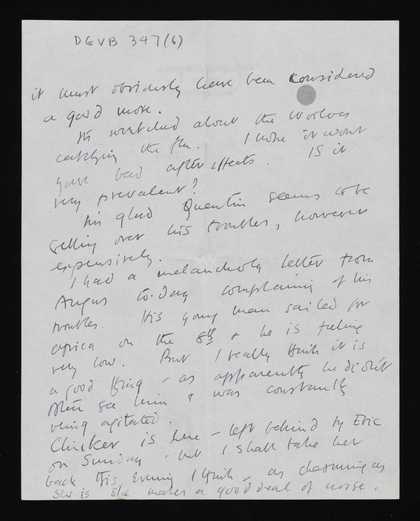 DGVB 347(6)
it must obviously have been considered
a good move.
Its wretched about the Woolves
catching the flu. I hope it wont
have bad after effects. Is it
very prevalent?
Im glad Quentin seems to be
getting over his troubles, however
expensively.
I had a melancholy letter from
Angus to-day complaining of his
troubles. His young man sailed for
Africa on the 8th & he is feeling
very low. But I really think it is
a good thing - as apparently he didn't
often see him & was constantly
being agitated.
Clinker is here - left behind by Eric
on Sunday - but I shall take her
back this evening I think - as charming as
she is she makes a good deal of noise.